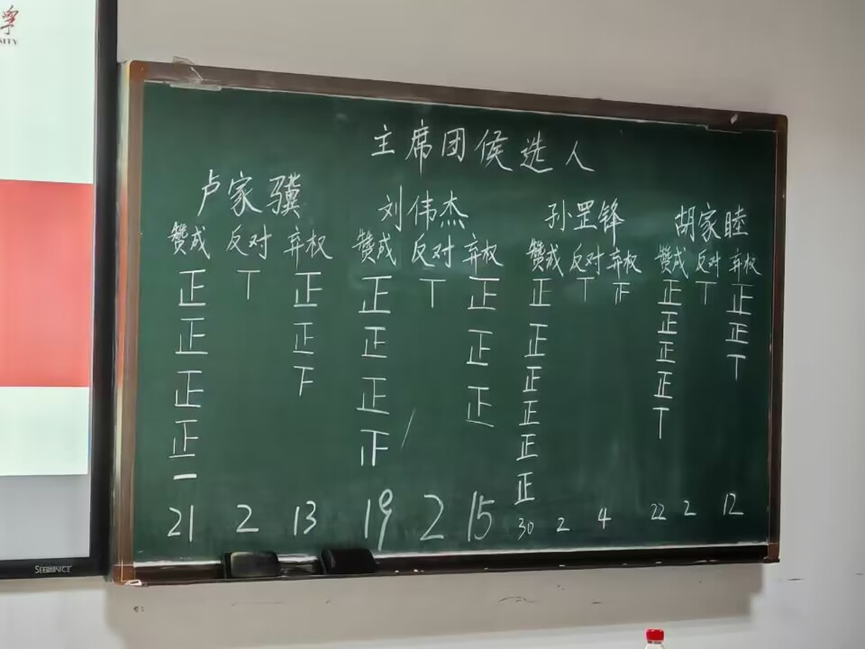 学
SITY
主席团候选人
卢家骥 刘伟杰 孙罡锋 胡家睦
赞成 反对 弃权 赞成 反对 弃权 赞成 反对 弃权 赞成 反对 弃权
正 T 正 正 T 正 正 T 正 正 T 正
正 正 正 正 正 正 正
正 下 正 正 正 正 T
正 正 正 正
一 正 T
正
21 2 13 19 2 15 30 2 4 22 2 12